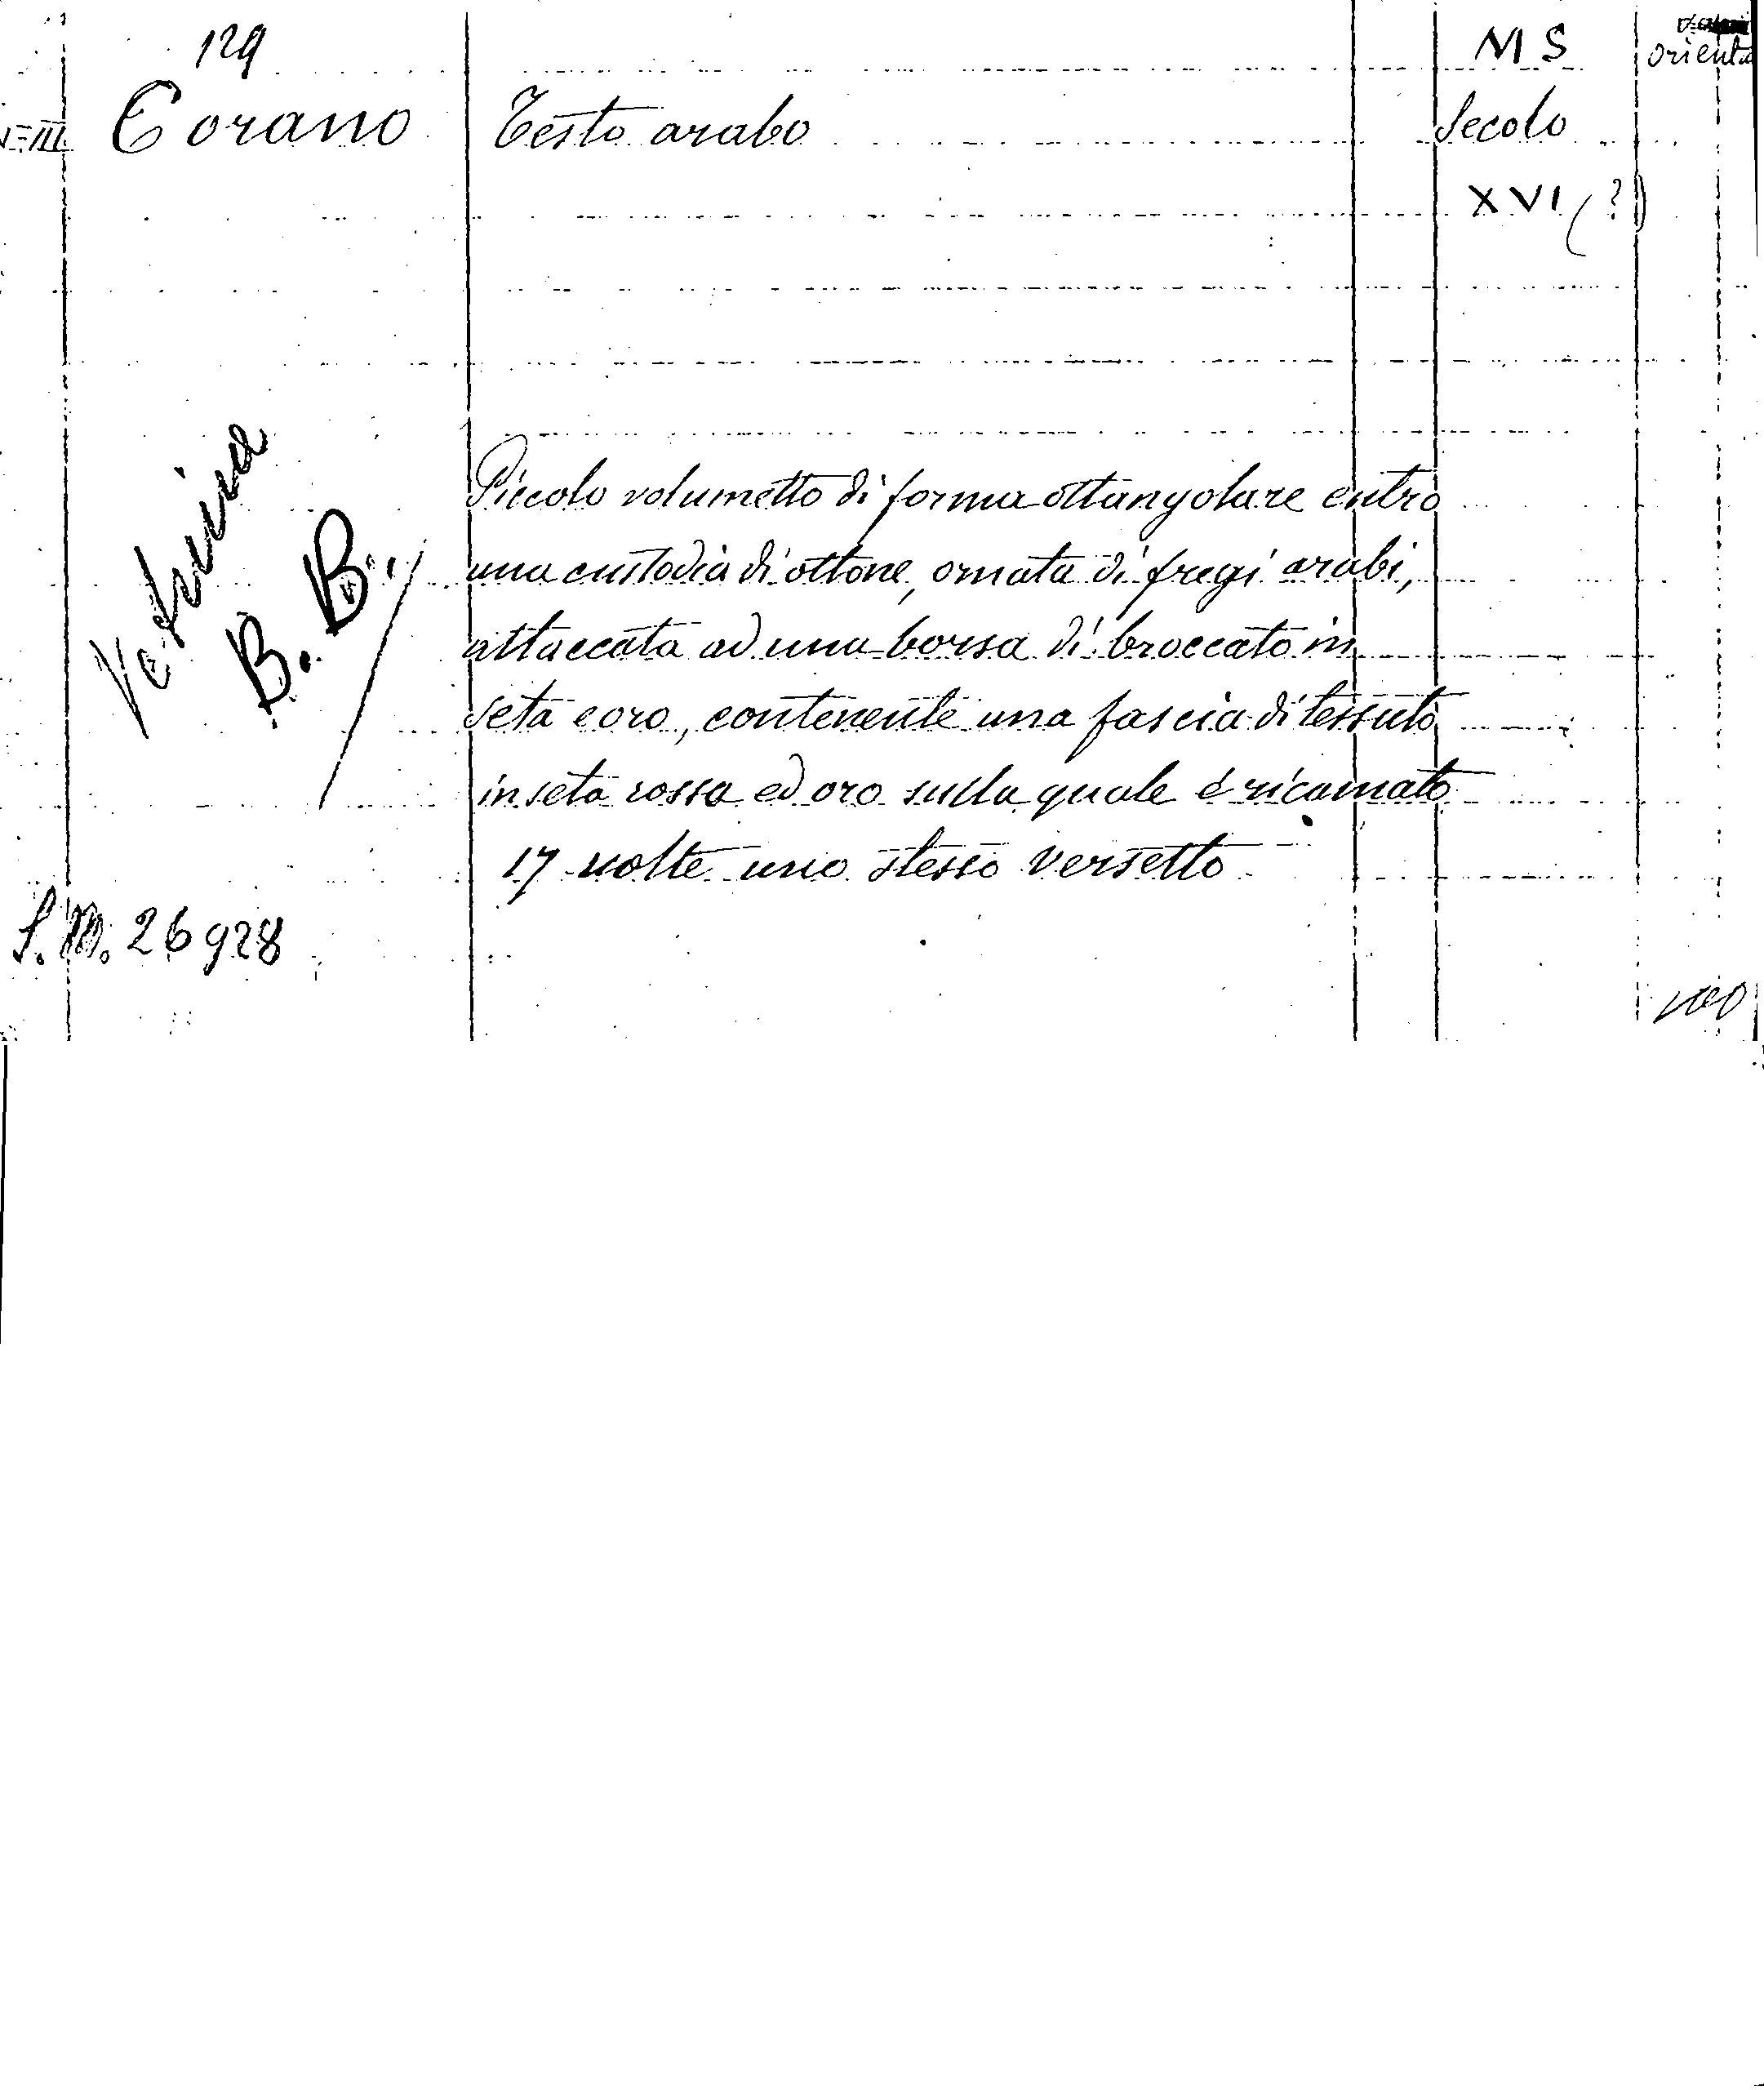 129
MS
orienta
Corano
Testo arabo
Secolo
XVI (?)
Piccolo volumetto di forma ottangolare entro
una custodia di ottone, ornata di fregi arabi,
attaccata ad una borsa di broccato in
seta e oro, contenente una fascia di tessuto
in seta rossa ed oro sulla quale è ricamato
17 volte uno stesso versetto
Vetrina
B. B.
S.M. 26928
100